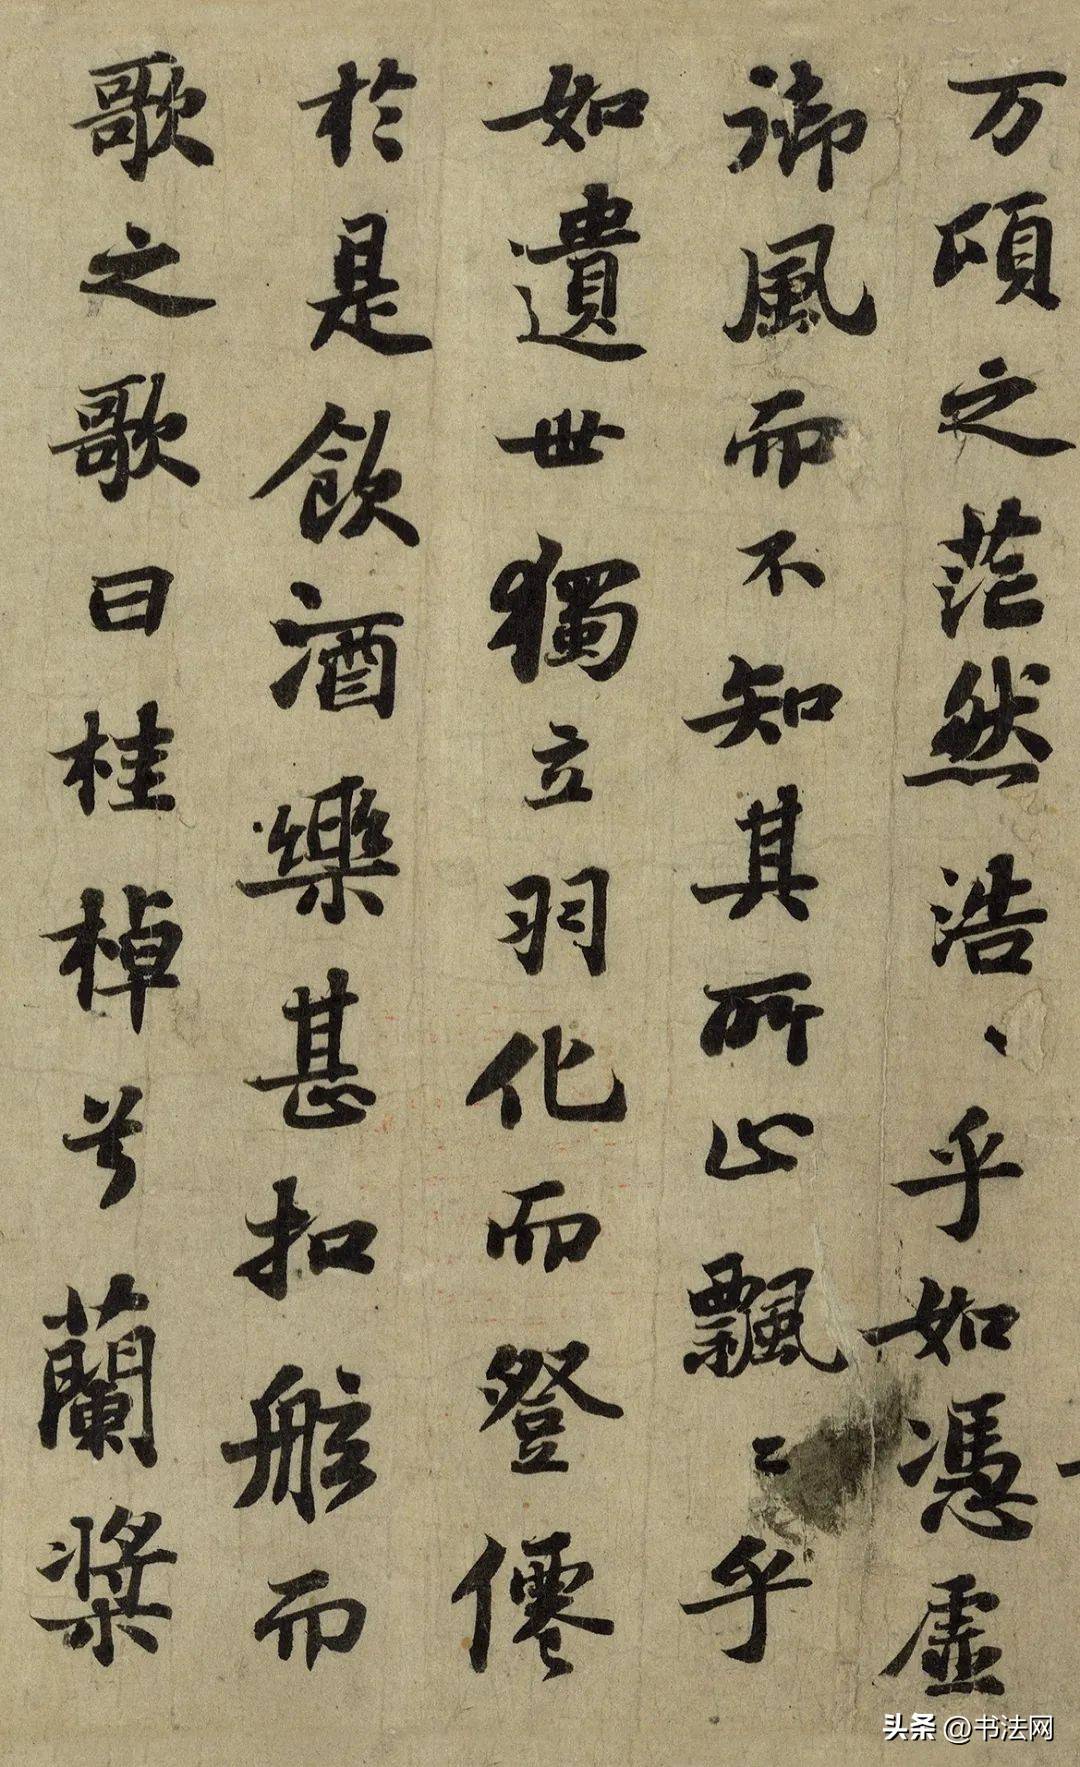 万頃之茫然浩、乎如憑虛
御風而不知其所止飄〻乎
如遺世獨立羽化而登僊
於是飲酒樂甚扣舷而
歌之歌曰桂棹兮蘭槳
头条 @书法网